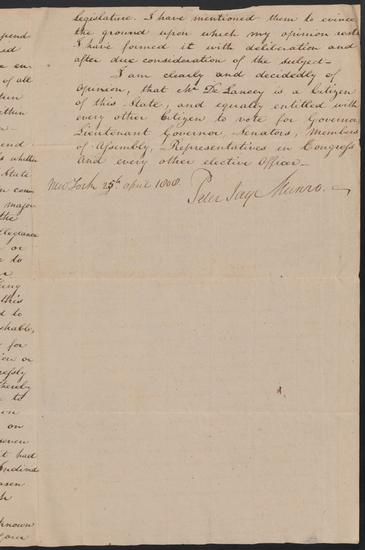 Legislature. I have mentioned them to evince
the ground upon which my opinion rests
I have formed it with deliberation and
after due consideration of the subject_
I am clearly and decidedly of
Opinion, that Mr De Lancey is a Citizen
of this State, and equally entitled with
every other Citizen to vote for Governor
Lieutenant Governor, Senators, Members
of Assembly, Representatives in Congress
and every other elective Officer_
New York 25th april 1808.
Peter Jay Munro.
of all
whether
State
major
the
or
to
this
to
for
or
to
on
it had
known
your